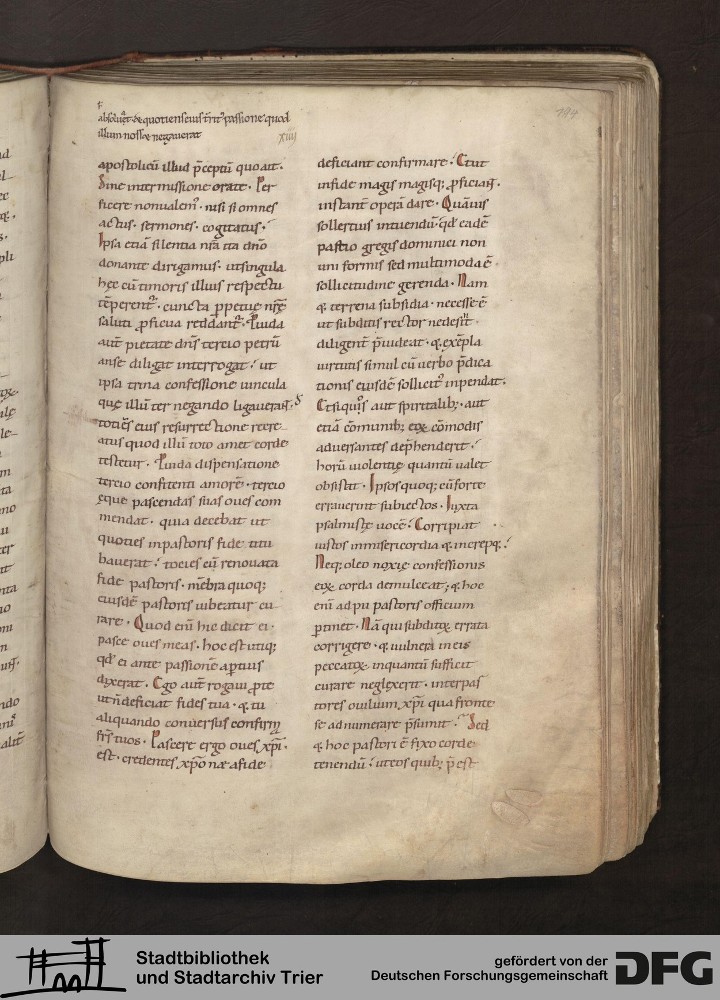 absoluit de quotiens eius trit passione quod
illum nosse negauerat
xiiii
194
apostolicũ illud p̃ceptũ quo ait.
Sine intermissione orate. Per
ficere non ualem᷒. nisi si omnes
actus. sermones. cogitatus.
Ipsa etiã silentia nr̃a ita dño
donante dirigamus. ut singula
hęc cũ timoris illius respectu
tẽperent᷒. cuncta ppetuę nr̃ę
saluti pficua reddant᷒. Quida
aut̃ pietate dñs tercio petrũ
an se diligat interrogat. ut
ipsa trina confessione uincula
quę illũ ter negando ligauerañ.
totiẽs eius resurrectione recre
atus quod illũ toto amet corde
testetur. Quida dispensatione
tercio confitenti amorẽ. tercio
ęque pascendas suas oues com
mendat. quia decebat ut
quoties in pastoris fide titu
bauerat. toties cũ renouata
fide pastoris. mẽbra quoq;
eiusdẽ pastoris iubeatur cu
rare. Quod enĩ hic dicit ei.
pasce oues meas. hoc est utiq;
qđ ei ante passionẽ apertius
dixerat. Ego aut̃ rogaui p te
ut ñ deficiat fides tua. &. tu
aliquando conuersus confirm̃
fr̃s tuos. Pascere ergo oues xp̃i.
est. credentes xp̃o ne a fide
deficiant confirmare. Et ut
in fide magis magisq; pficiañ.
instant operã dare. Quãuis
sollertius intuendũ. qđ eadẽ
pastio gregis dominici non
uni formis sed multimoda ẽ
sollicitudine gerenda. Nam
&. terrena subsidia. necesse ẽ
ut subditis rector ne desit
diligent p̃uideat. &. exẽpla
uirtutis simul cũ uerbo p̃dica
tionis eiusdẽ sollicit᷒ inpendat.
Et si qu̾os aut spiritalib;. aut
etiã comunib; eoꝝ cõmodis
aduersantes dep̃henderit.
horũ uiolentię quantũ ualet
obsistat. Ipsos quoq; cũ forte
errauerint subiectos. Iuxta
psalmistę uocẽ. Corripiat
iustos in misericordia &. increpet.
Neq; oleo noxię confessionis
eoꝝ corda demulceat; &. hoc
enĩ ad pii pastoris officium
ptinet. Nã qui subditoꝝ errata
corrigere. &. uulnera in eis
peccatoꝝ. in quantũ sufficit
curare neglexerit. inter pas
tores ouium xp̃i qua fronte
se ad numerare p̃sumit. Sed
&. hoc pastori ẽ fixo corde
tenendũ. ut eos quib; p̃est
Stadtbibliothek
und Stadtarchiv Trier
gefördert von der
Deutschen Forschungsgemeinschaft
DFG